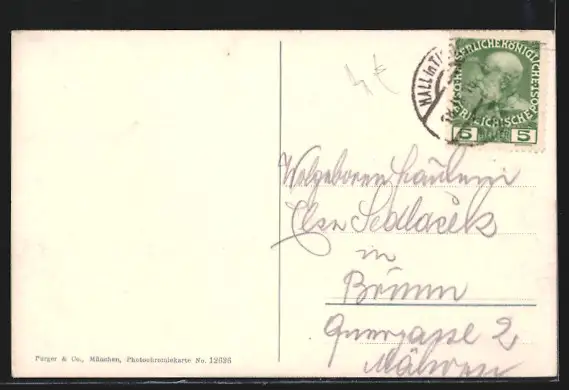 4 €
HALL in TI
KAISERLICHEKÖNIGLICHE
ÖSTERREICHISCHE
5 HELLER 5
Wolgeboren Fräulein
Elsa Sedlaček
in
Brünn
Quergasse 2
Mähren
Purger & Co., München, Photochromiekarte No. 12626